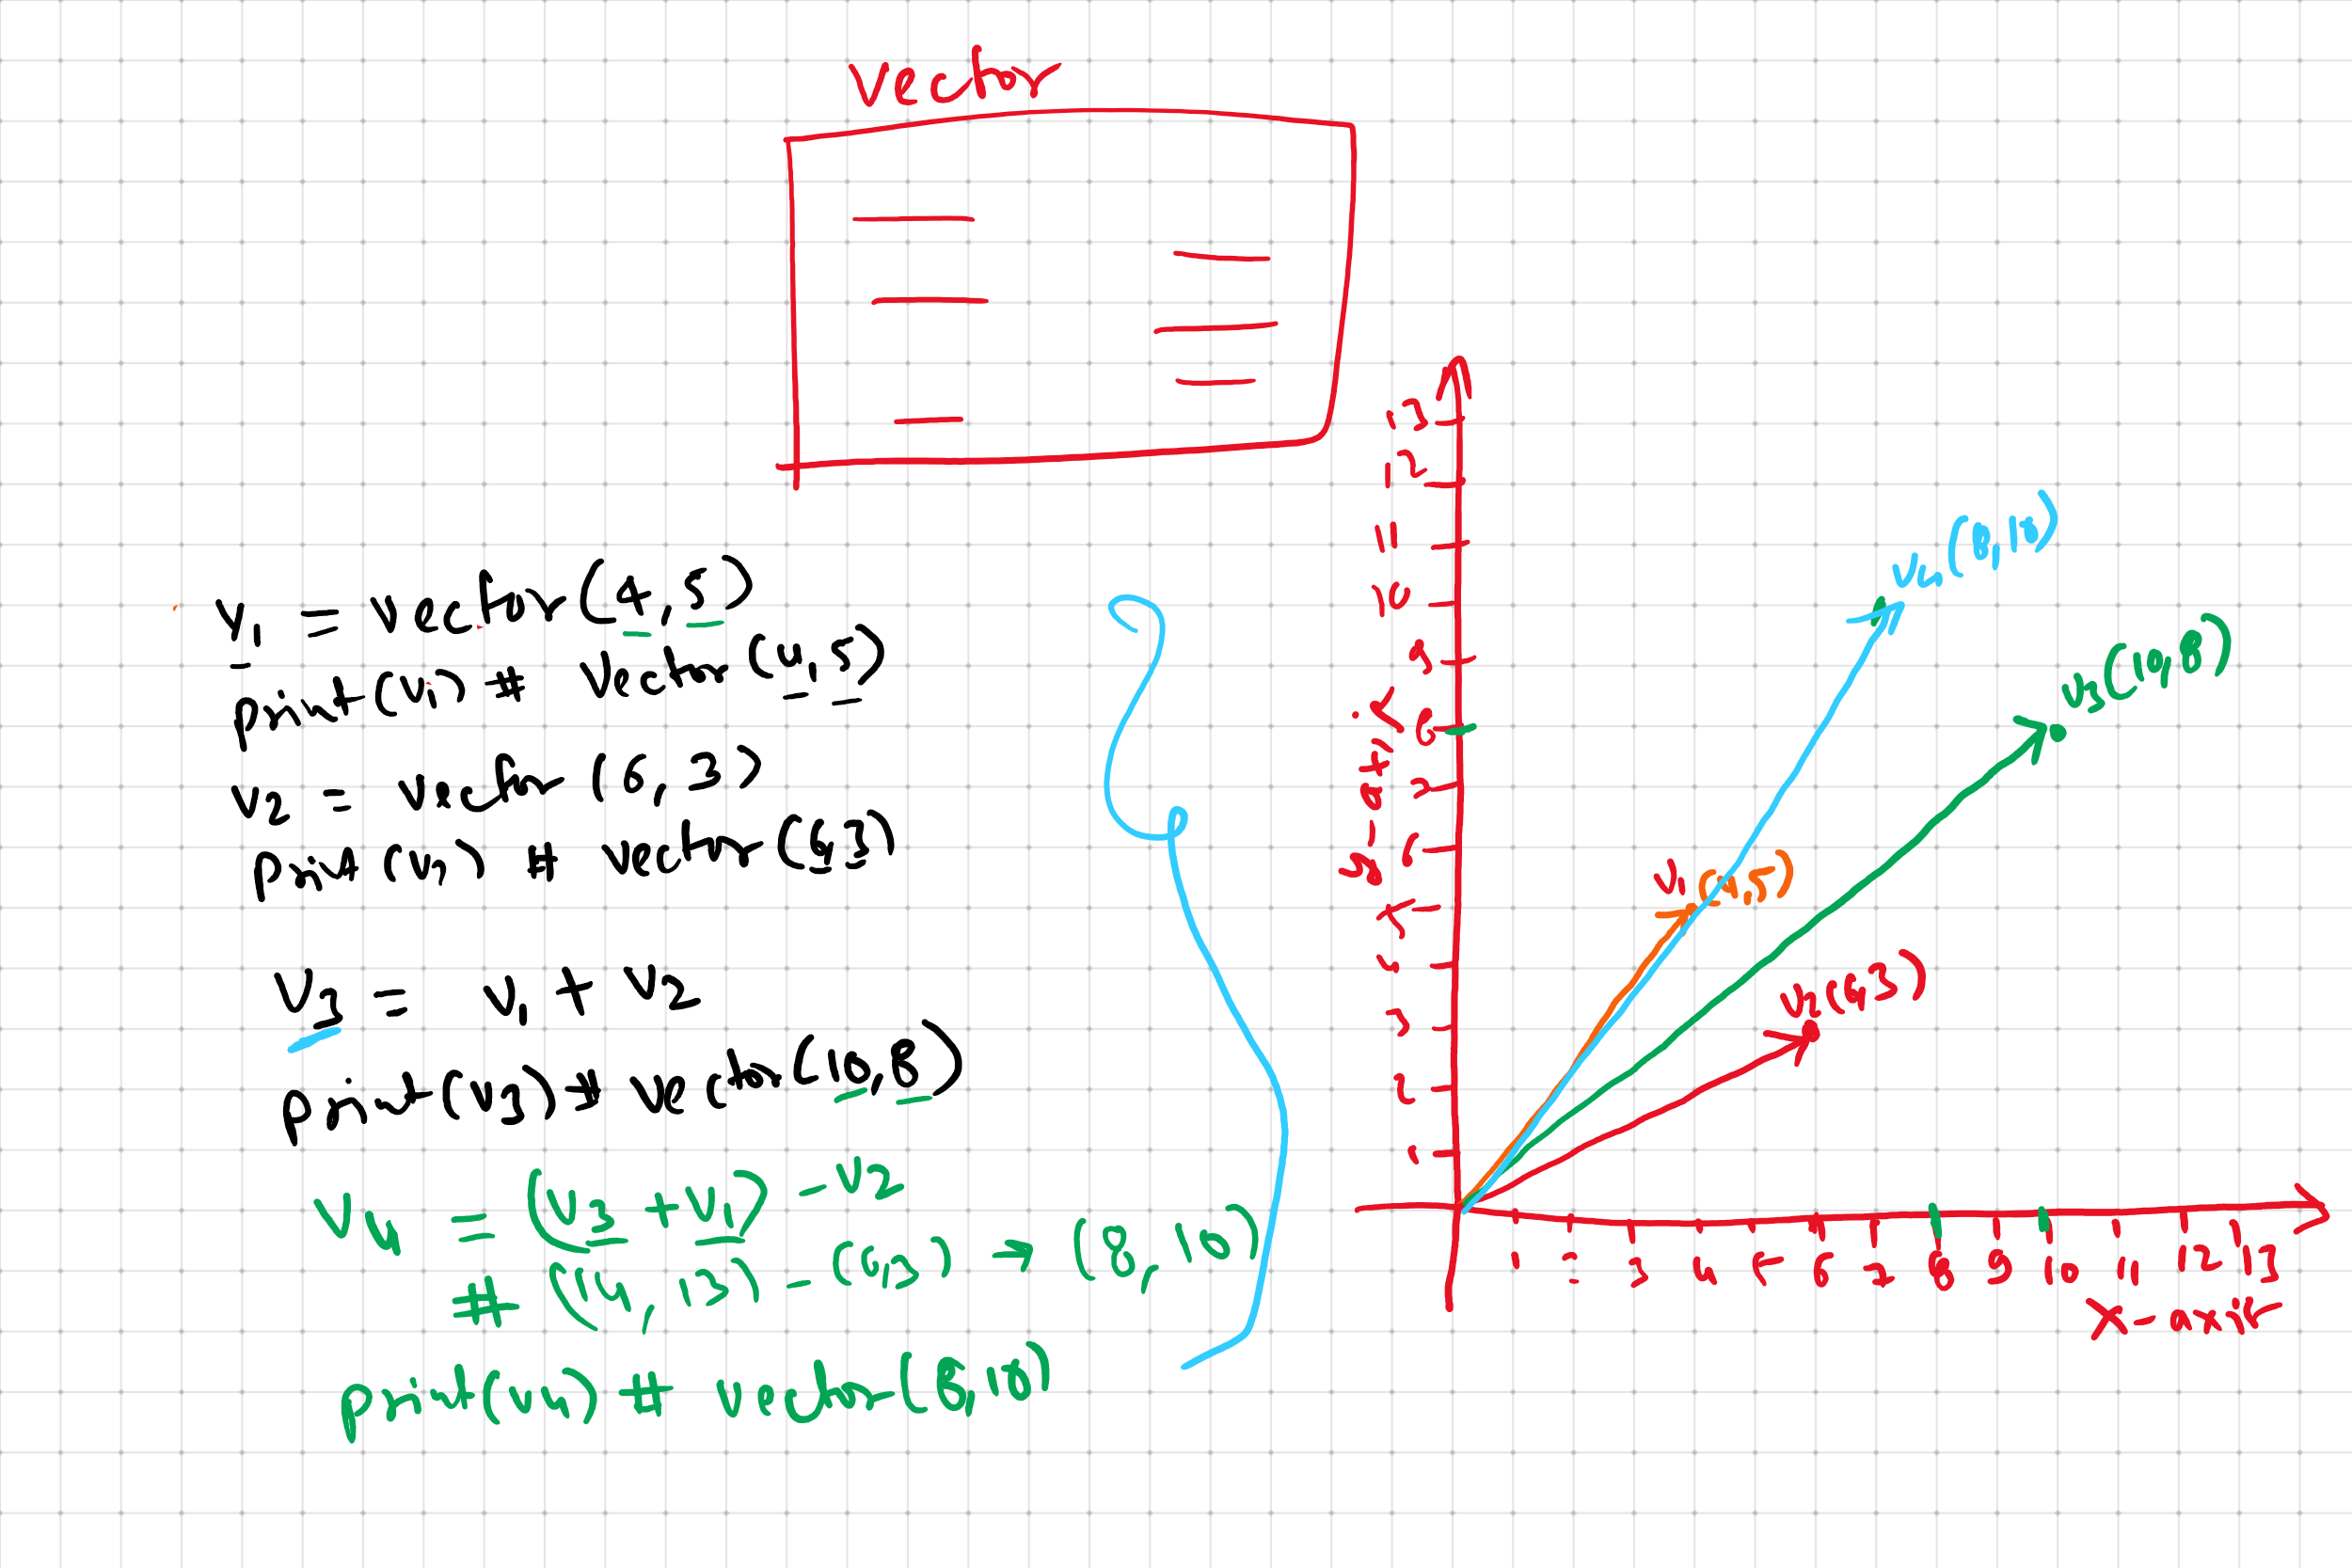 vector
v1 = vector(4,5)
print(v1) # Vector(4,5)
v2 = vector(6,3)
print(v2) # vector(6,3)
v3 = v1 + v2
print(v3) # vector(10,8)
v4 = (v3 + v1) - v2
# (14,13) - (6,3) → (8,10)
print(v4) # vector(8,10)
13
12
11
10
9
8
7
6
5
4
3
2
1
y-axis
v4(8,10)
v3(10,8)
v1(4,5)
v2(6,3)
1 2 3 4 5 6 7 8 9 10 11 12 13
x-axis